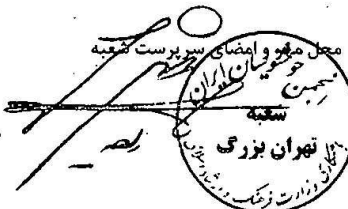 محل مهر و امضای سرپرست شعبه
انجمن خوشنویسان ایران
شعبه
تهران بزرگ
وزارت فرهنگ و ارشاد اسلامی